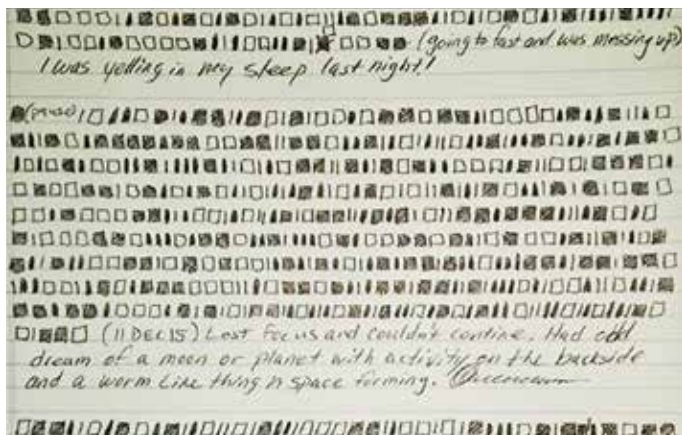 (going to fast and was messing up)
I was yelling in my sleep last night!
(11 DEC 15) Lost focus and couldn't contine. Had odd
dream of a moon or planet with activity on the backside
and a worm like thing n space forming.